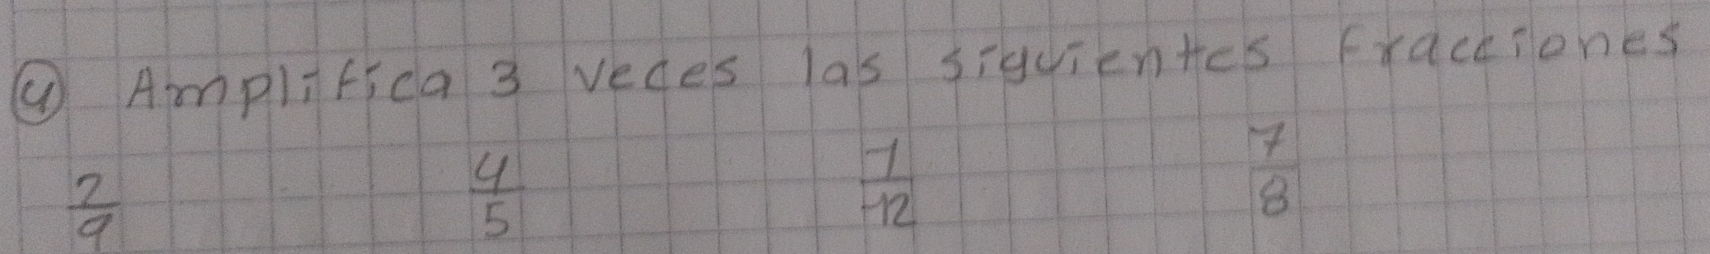 ④ Amplifica 3 veces las siguientes fracciones
2/9 4/5 1/12 7/8